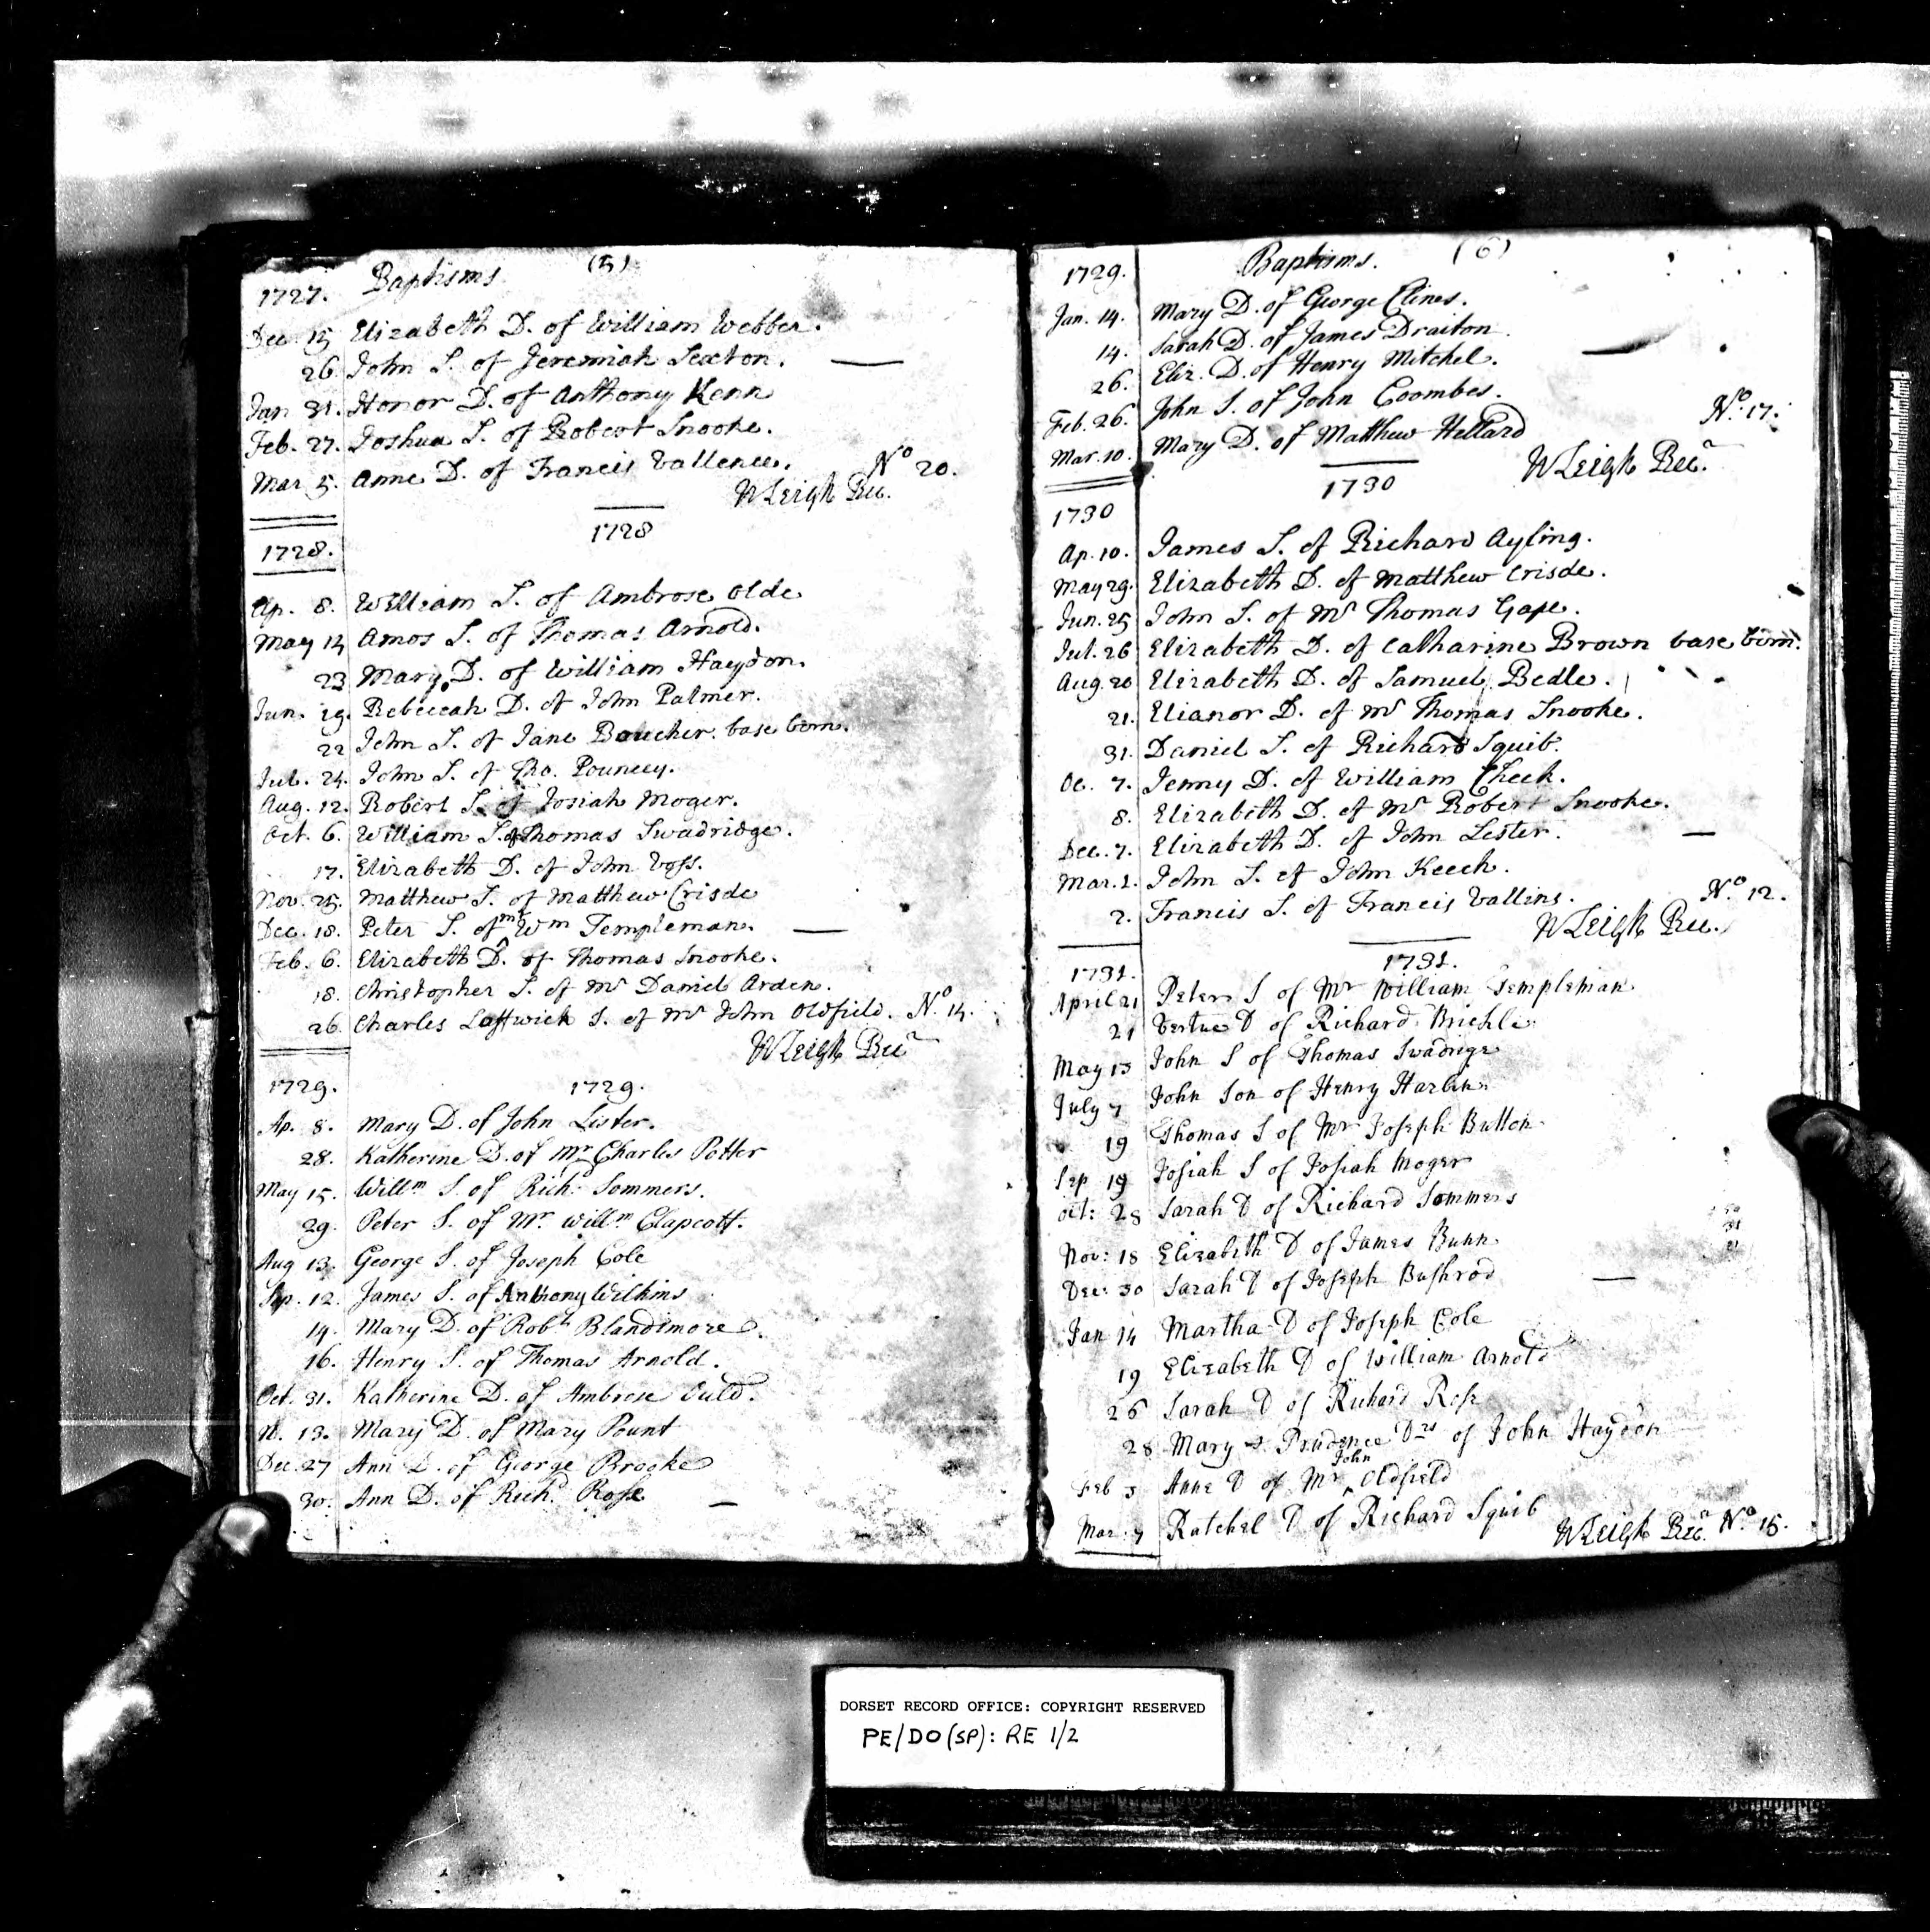 1727. Baptisms (5)
Dec. 15 Elizabeth D. of William Webber.
26. John S. of Jeremiah Sexton.
Jan 31. Honor D. of Anthony Kenn
Feb. 27. Joshua S. of Robert Snooke.
Mar. 5. Anne D. of Francis Vallence. No 20.
W Leigh Rec.
1728
1728.
Ap. 8. William S. of Ambrose Olde
May 14 Amos S. of Thomas Arnold.
23 Mary D. of William Haydon.
Jun. 19. Rebeccah D. of John Palmer.
22 John S. of Jane Boucher. base born.
Jul. 24. John S. of Tho. Pouncey.
Aug. 12. Robert S. of Josiah Moger.
Oct. 6. William S. of Thomas Swadridge.
17. Elizabeth D. of John Voss.
Nov. 25. Matthew S. of Matthew Crisde
Dec. 18. Peter S. of mr Wm Templeman.
Feb. 6. Elizabeth D. of Thomas Snooke.
18. Christopher S. of Mr Daniel Arden.
26. Charles Loftwich S. of Mr John Oldfield. No. 14.
W Leigh Recr
1729. 1729.
Ap. 8. Mary D. of John Lister.
28. Katherine D. of Mr Charles Potter
May 15. Willm S. of Richd Sommers.
29. Peter S. of Mr. Willm Clapcott.
Aug 13. George S. of Joseph Cole
Sep. 12. James S. of Anthony Wilkins
14. Mary D. of Robt Blandimore.
16. Henry S. of Thomas Arnold.
Oct. 31. Katherine D. of Ambrose Ould.
N. 13. Mary D. of Mary Pount
Dec. 27 Ann D. of George Brooke
30. Ann D. of Richd Rose
1729. Baptisms. (6)
Jan. 14. Mary D. of George Clines.
14. Sarah D. of James Draiton
26. Eliz. D. of Henry Mitchel.
Feb. 26. John S. of John Coombes.
Mar. 10. Mary D. of Matthew Hellard No. 17.
W Leigh Recr
1730
1730
Ap. 10. James S. of Richard Ayling.
May 29. Elizabeth D. of Matthew Crisde.
Jun. 25 John S. of Mr Thomas Gape.
Jul. 26 Elizabeth D. of Catharine Brown base born.
Aug. 20 Elizabeth D. of Samuel Bedle.
21. Elianor D. of Mr Thomas Snooke.
31. Daniel S. of Richard Squib.
Oc. 7. Jenny D. of William Cheek.
8. Elizabeth D. of Mr Robert Snooke.
Dec. 7. Elizabeth D. of John Lester.
Mar. 1. John S. of John Keech.
2. Francis S. of Francis Vallins. No. 12.
W Leigh Rec.
1731. 1731.
April 21 Peter S of Mr William Templeman
21 Vertue D of Richard Brickle
May 13 John S of Thomas Swadrige
July 7 John Son of Henry Harbin
19 Thomas S of Mr Joseph Button
Sep 19 Josiah S of Josiah Moger
Oct: 28 Sarah D of Richard Sommers
Nov: 18 Elizabeth D of James Bunn
Dec: 30 Sarah D of Joseph Bushrod
Jan 14 Martha D of Joseph Cole
19 Elizabeth D of William Arnold
26 Sarah D of Richard Rose
28 Mary & Prudence Drs of John Haydon
Feb 3 Anne D of Mr John Oldfield
Mar. 7 Ratchel D of Richard Squib
W Leigh Recr No. 15.
DORSET RECORD OFFICE: COPYRIGHT RESERVED
PE/DO(SP): RE 1/2